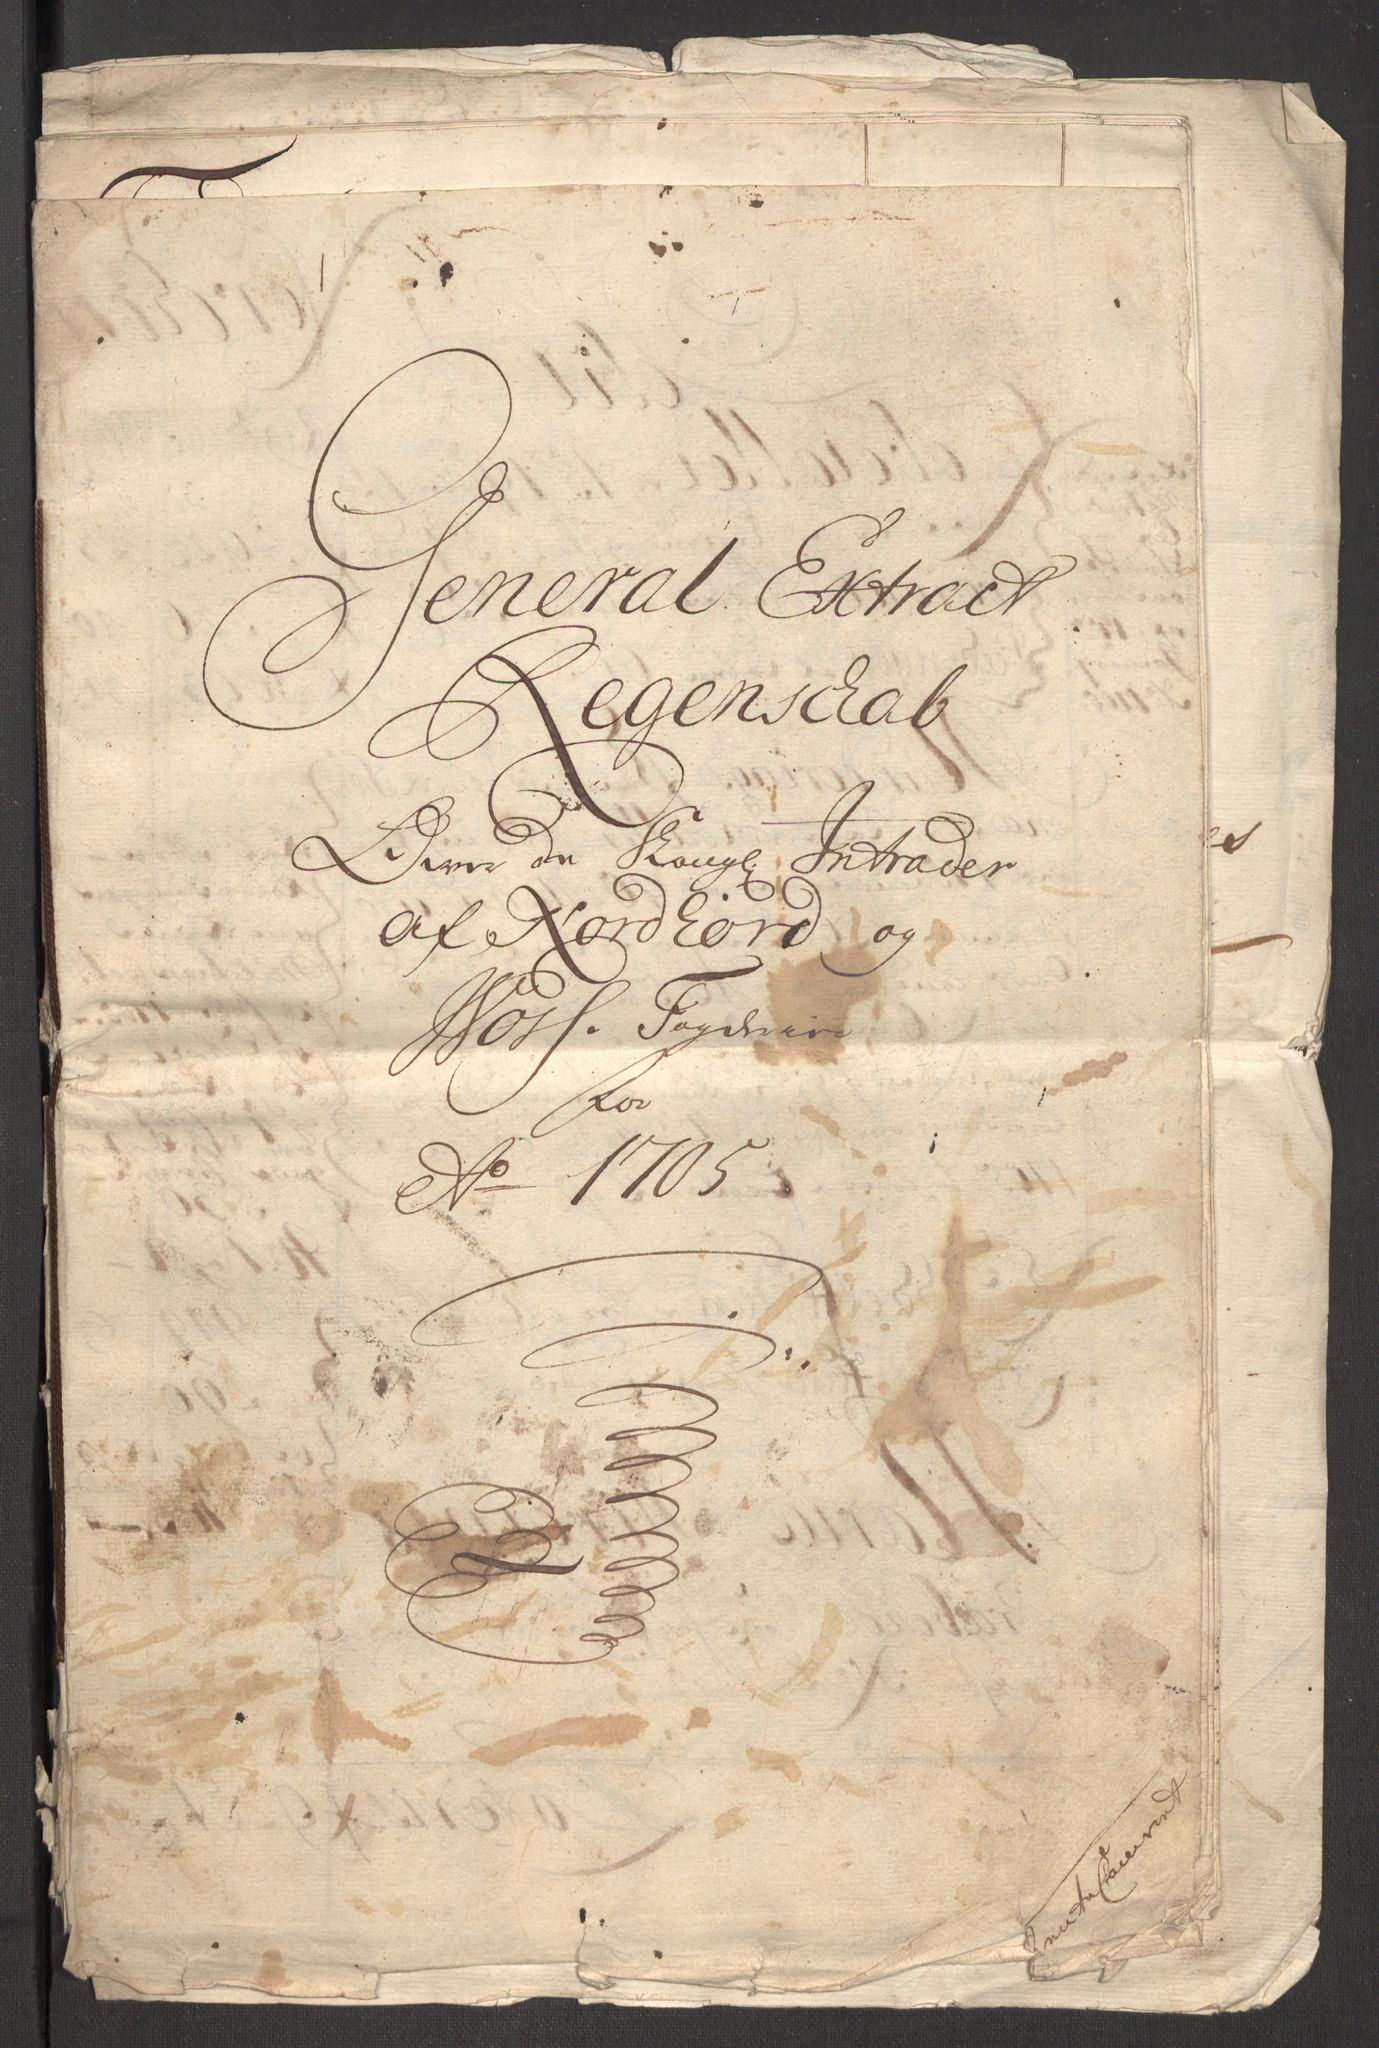 General Extract
Regenschab
Ower de Kongl: Intrader
af Nordhiord og
Woss. Fogderie
for
Ao 1705